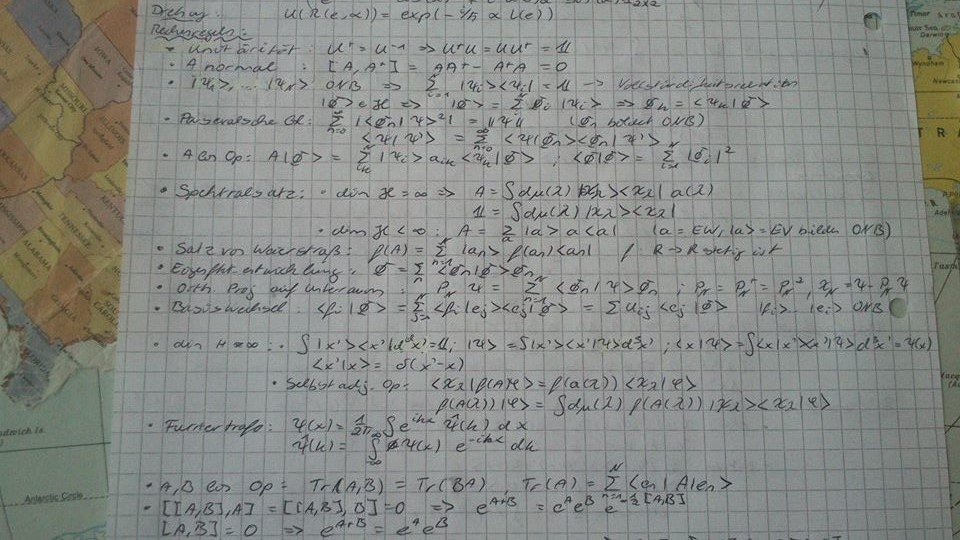 Drehung: U(R(e,α)) = exp(-i/ħ α L(e))
Rechenregeln:
• Unitarität: U⁺ = U⁻¹ => U⁺U = UU⁺ = 𝟙
• A normal: [A, A⁺] = AA⁺ - A⁺A = 0
• |Ψ₁>, ... |Ψ_N> ONB => Σ_{i=1}^N |Ψi><Ψi| = 𝟙 -> Vollständigkeitsrelation
|Φ> ∈ H => |Φ> = Σ Φi |Ψi> => Φn = <Ψn|Φ>
• Parsevalsche Gl: Σ_{n=0}^∞ |<Φn|Ψ>²| = ||Ψ|| (Φn bildet ONB)
<Ψ|Ψ'> = Σ_{n=0}^∞ <Ψ|Φn><Φn|Ψ'>
• A lin Op: A|Φ> = Σ_{ik}^N |Ψi> aik <Ψk|Φ> ; <Φ|Φ> = Σ_{i=1}^N |Φi|²
• Spektralsatz: • dim H = ∞ => A = ∫dμ(λ) |χλ><χλ| a(λ)
𝟙 = ∫dμ(λ) |χλ><χλ|
• dim H < ∞: A = Σ_a |a> a <a| (a = EW, |a> = EV bilden ONB)
• Satz von Weierstraß: f(A) = Σ_{n=1}^N |an> f(an) <an| f: R -> R stetig ist
• Eigenfkt entwicklung: Φ = Σ_n <Φn|Φ>Φn
• Orth. Proj auf Unterraum: P_N Ψ = Σ_{n=1}^N <Φn|Ψ>Φn ; P_N = P_N⁺ = P_N², χ_N = Ψ - P_N Ψ
• Basiswechsel: <fi|Φ> = Σ_{j=1}^N <fi|ej><ej|Φ> = Σ Uij <ej|Φ> |fi>, |ei> ONB
• dim H = ∞: • ∫|x'><x'|d³x' = 𝟙; |Ψ> = ∫|x'><x'|Ψ>d³x' ; <x|Ψ> = ∫<x|x'><x'|Ψ>d³x' = Ψ(x)
<x'|x> = δ(x'-x)
• Selbstadj. Op: <χλ|f(A)φ> = f(a(λ)) <χλ|φ>
f(A(λ))|φ> = ∫dμ(λ) f(A(λ)) |χλ><χλ|φ>
• Furriertrafo: Ψ(x) = 1/2π ∫ e^{ikx} Ψ̂(k) dx
Ψ̂(k) = ∫_{-∞}^∞ Ψ(x) e^{-ikx} dk
• A,B lin Op: Tr(A,B) = Tr(BA) , Tr(A) = Σ_{n=1}^N <en|A|en>
• [[A,B],A] = [[A,B],B] = 0 => e^{A+B} = e^A e^B e^{-½[A,B]}
[A,B] = 0 => e^{A+B} = e^A e^B
MISSOURI
ILLINOIS
KENTUCKY
TENNESSEE
Antarctic Circle
Darwin